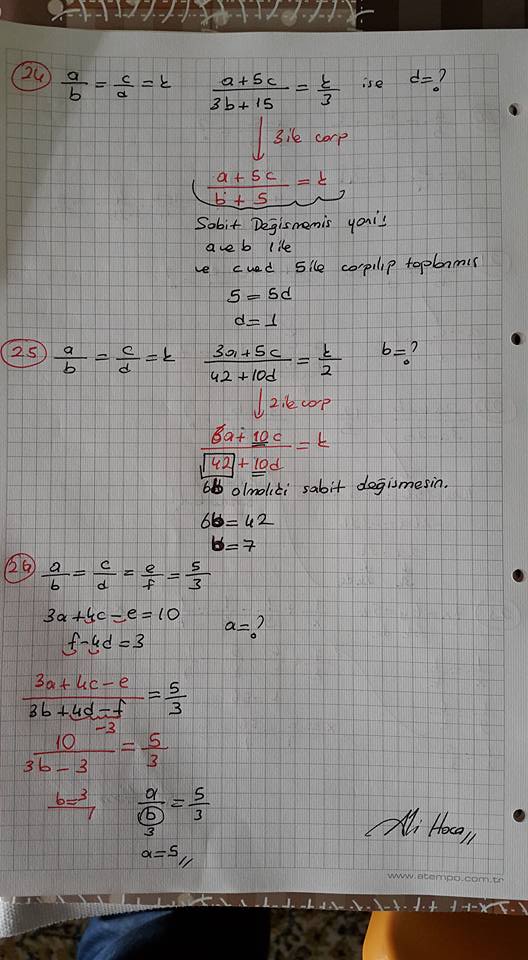 24 a/b = c/d = k   a+5c / 3b+15 = k/3 ise d=?
3 ile çarp
a+5c / b+5 = k
Sabit Değişmemiş yani
a ve b 1 ile
ve c ve d 5 ile çarpılıp toplanmış
5 = 5d
d=1
25 a/b = c/d = k   3a+5c / 42+10d = k/2   b=?
2 ile çarp
6a+10c / 42+10d = k
6b olmalı ki sabit değişmesin.
6b=42
b=7
26 a/b = c/d = e/f = 5/3
3a+4c-e=10   a=?
f-4d=3
3a+4c-e / 3b+4d-f = 5/3
10 / 3b-3 = 5/3
-3
b=3   a/b = 5/3
3
a=5,,
Ali Hoca,,
www.atempo.com.tr